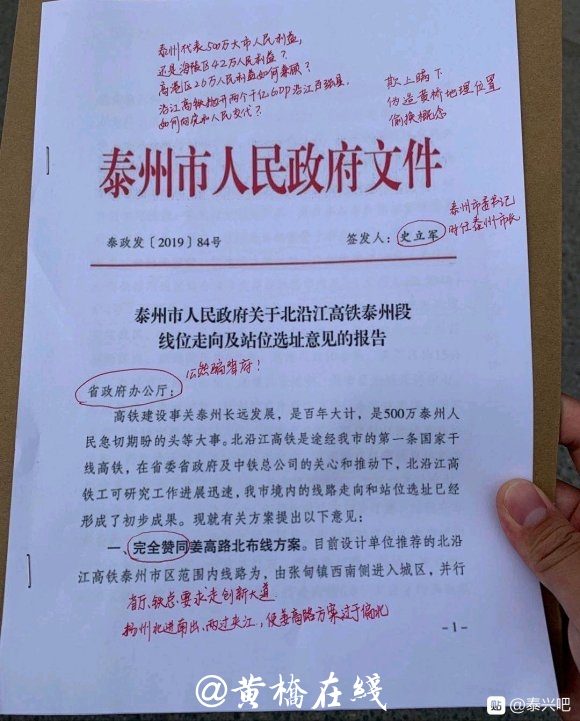 泰州代表500万大市人民利益,
还是海陵区42万人民利益?
高港区26万人民利益如何兼顾?
沿江高铁抛开两个千亿GDP沿江百强县,
如何向党和人民交代?
欺上瞒下
伪造黄桥地理位置
偷换概念
泰州市人民政府文件
泰州市委书记
时任泰州市长
泰政发〔2019〕84号 签发人:史立军
泰州市人民政府关于北沿江高铁泰州段
线位走向及站位选址意见的报告
公然骗省府!
省政府办公厅:
高铁建设事关泰州长远发展,是百年大计,是500万泰州人
民急切期盼的头等大事。北沿江高铁是途经我市的第一条国家干
线高铁,在省委省政府及中铁总公司的关心和推动下,北沿江高
铁工可研究工作进展迅速,我市境内的线路走向和站位选址已经
形成了初步成果。现就有关方案提出以下意见:
一、完全赞同姜高路北布线方案。目前设计单位推荐的北沿
江高铁泰州市区范围内线路为,由张甸镇西南侧进入城区,并行
省厅、铁总要求走创新大道
扬州北进南出、两过夹江,使姜高路方案过于偏北
-1-
@黄橋在綫
贴 @泰兴吧